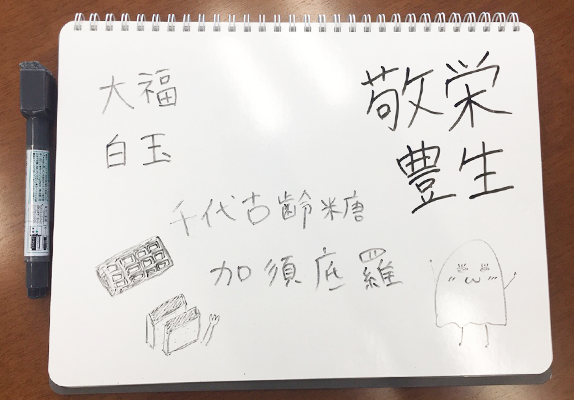 大福
白玉
敬栄
豊生
千代古齢糖
加須底羅